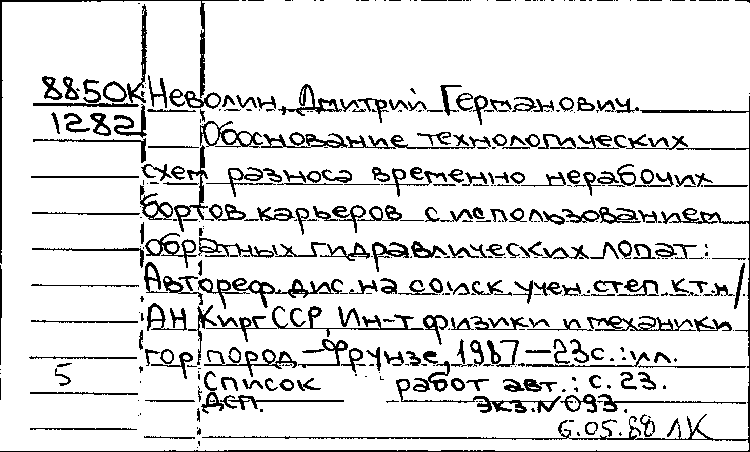 88.50К Неволин, Дмитрий Германович.
1282 Обоснование технологических
схем разноса временно нерабочих
бортов карьеров с использованием
обратных гидравлических лопат:
Автореф. дис. на соиск. учен. степ. к.т.н/
АН Кирг ССР, Ин-т физики и механики
гор пород. - Фрунзе, 1987 - 23с.: ил.
5 Список работ авт.: с. 23.
ДСП. Экз. № 093.
6.05.88 ЛК